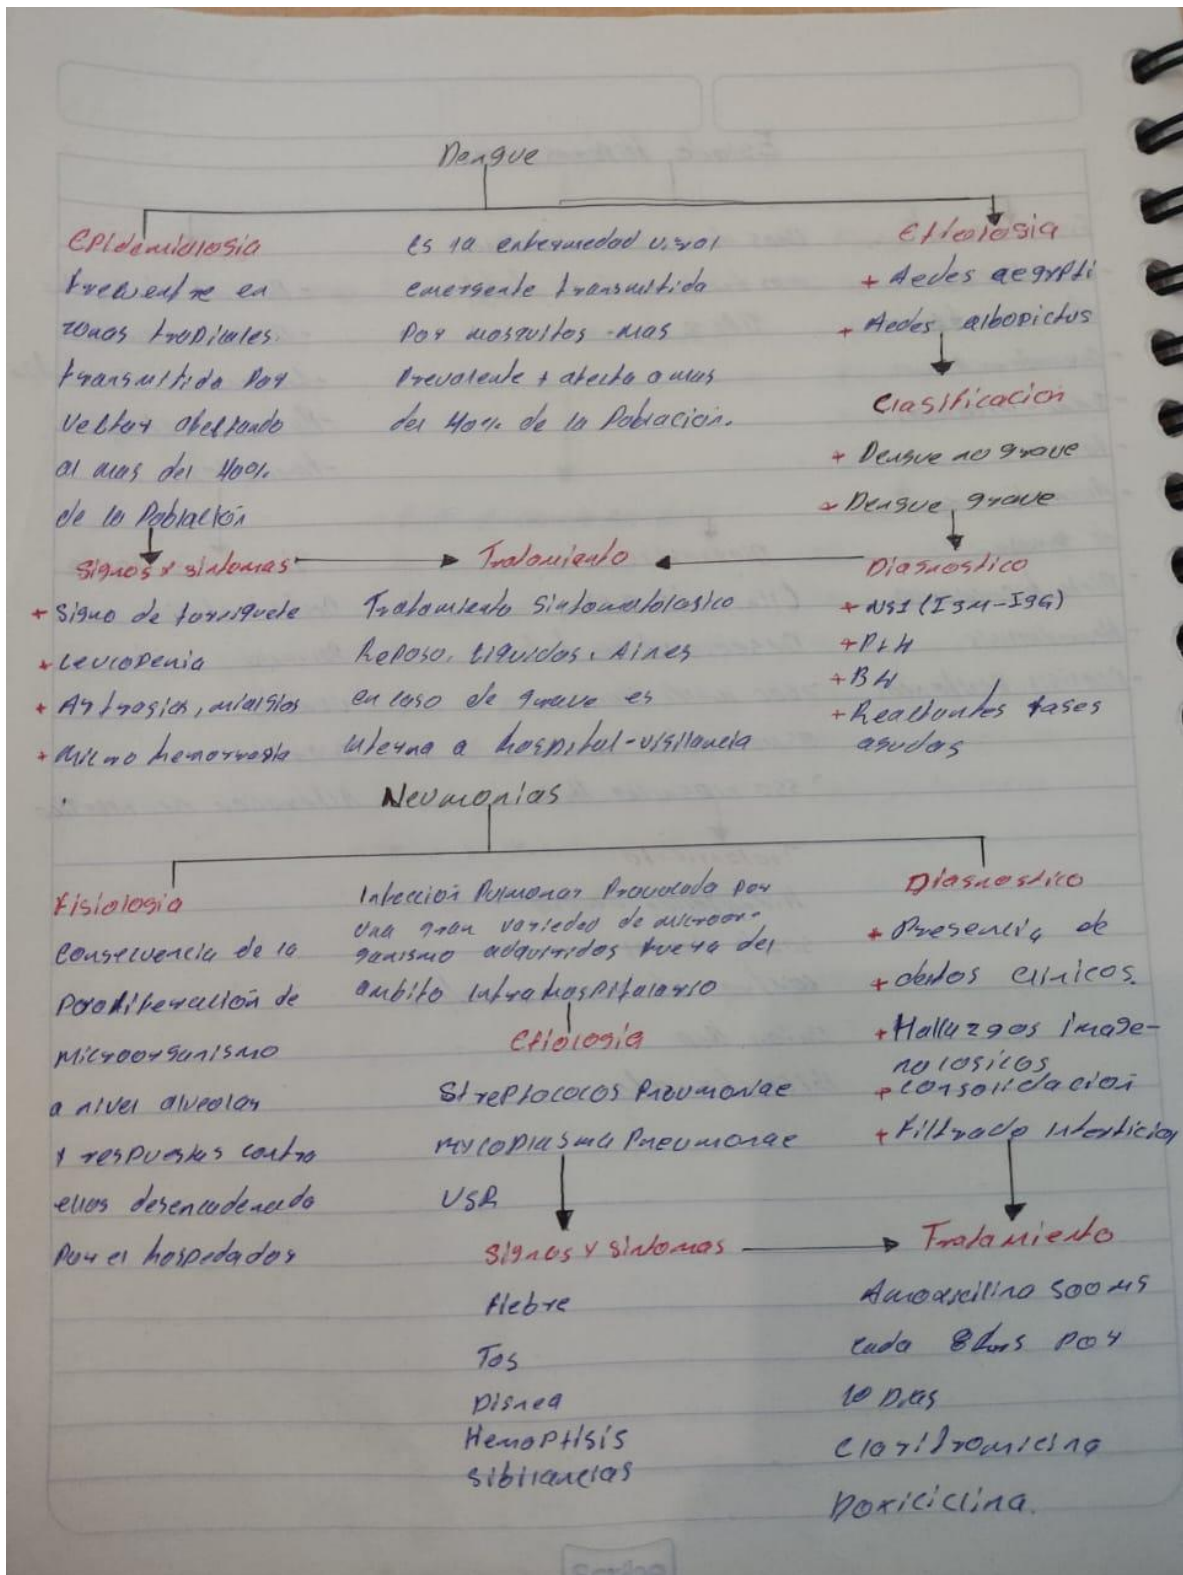 Dengue
Epidemiologia
frecuentre en
zonas tropicales.
transmitido por
Vector afectando
al mas del 40%
de la Población
Es la enfermedad viral
emergente transmitida
Por mosquitos -mas
Prevalente + afecta a mas
del 40% de la Población.
Etiologia
+ Aedes aegypti
+ Aedes albopictus
Clasificacion
+ Dengue no grave
+ Dengue grave
Signos y sintomas
+ Signo de torniquete
+ Leucopenia
+ Artragias, mialgias
+ Micro hemorragia
Tratamiento
Tratamiento Sintomatologico
Reposo, Liquidos, Aines
en caso de grave es
interna a hospital-vigilancia
Diagnostico
+ NS1 (IgM-IgG)
+ PLH
+ BH
+ Reactantes fases
agudas
Neumonias
Fisiologia
Consecuencia de la
Poroliferación de
Microorganismo
a nivel alveolar
y respuestas contra
ellos desencadenada
Por el hospedador
Infección Pulmonar Provocada por
una gran variedad de microor-
ganismo adquiridos fuera del
ambito intrahospitalario
Etiologia
Streptococos Pneumoniae
Mycoplasma Pneumonae
VSR
Signos y Sintomas
Fiebre
Tos
Disnea
Hemoptisis
Sibilancias
Diagnostico
+ Presencia de
+ datos clinicos.
+ Hallazgos image-
nologicos
+ consolidación
+ Filtrado intersticial
Tratamiento
Amoxicilina 500 mg
cada 8 hrs por
10 Dias
Claritromicina
Doxiciclina.